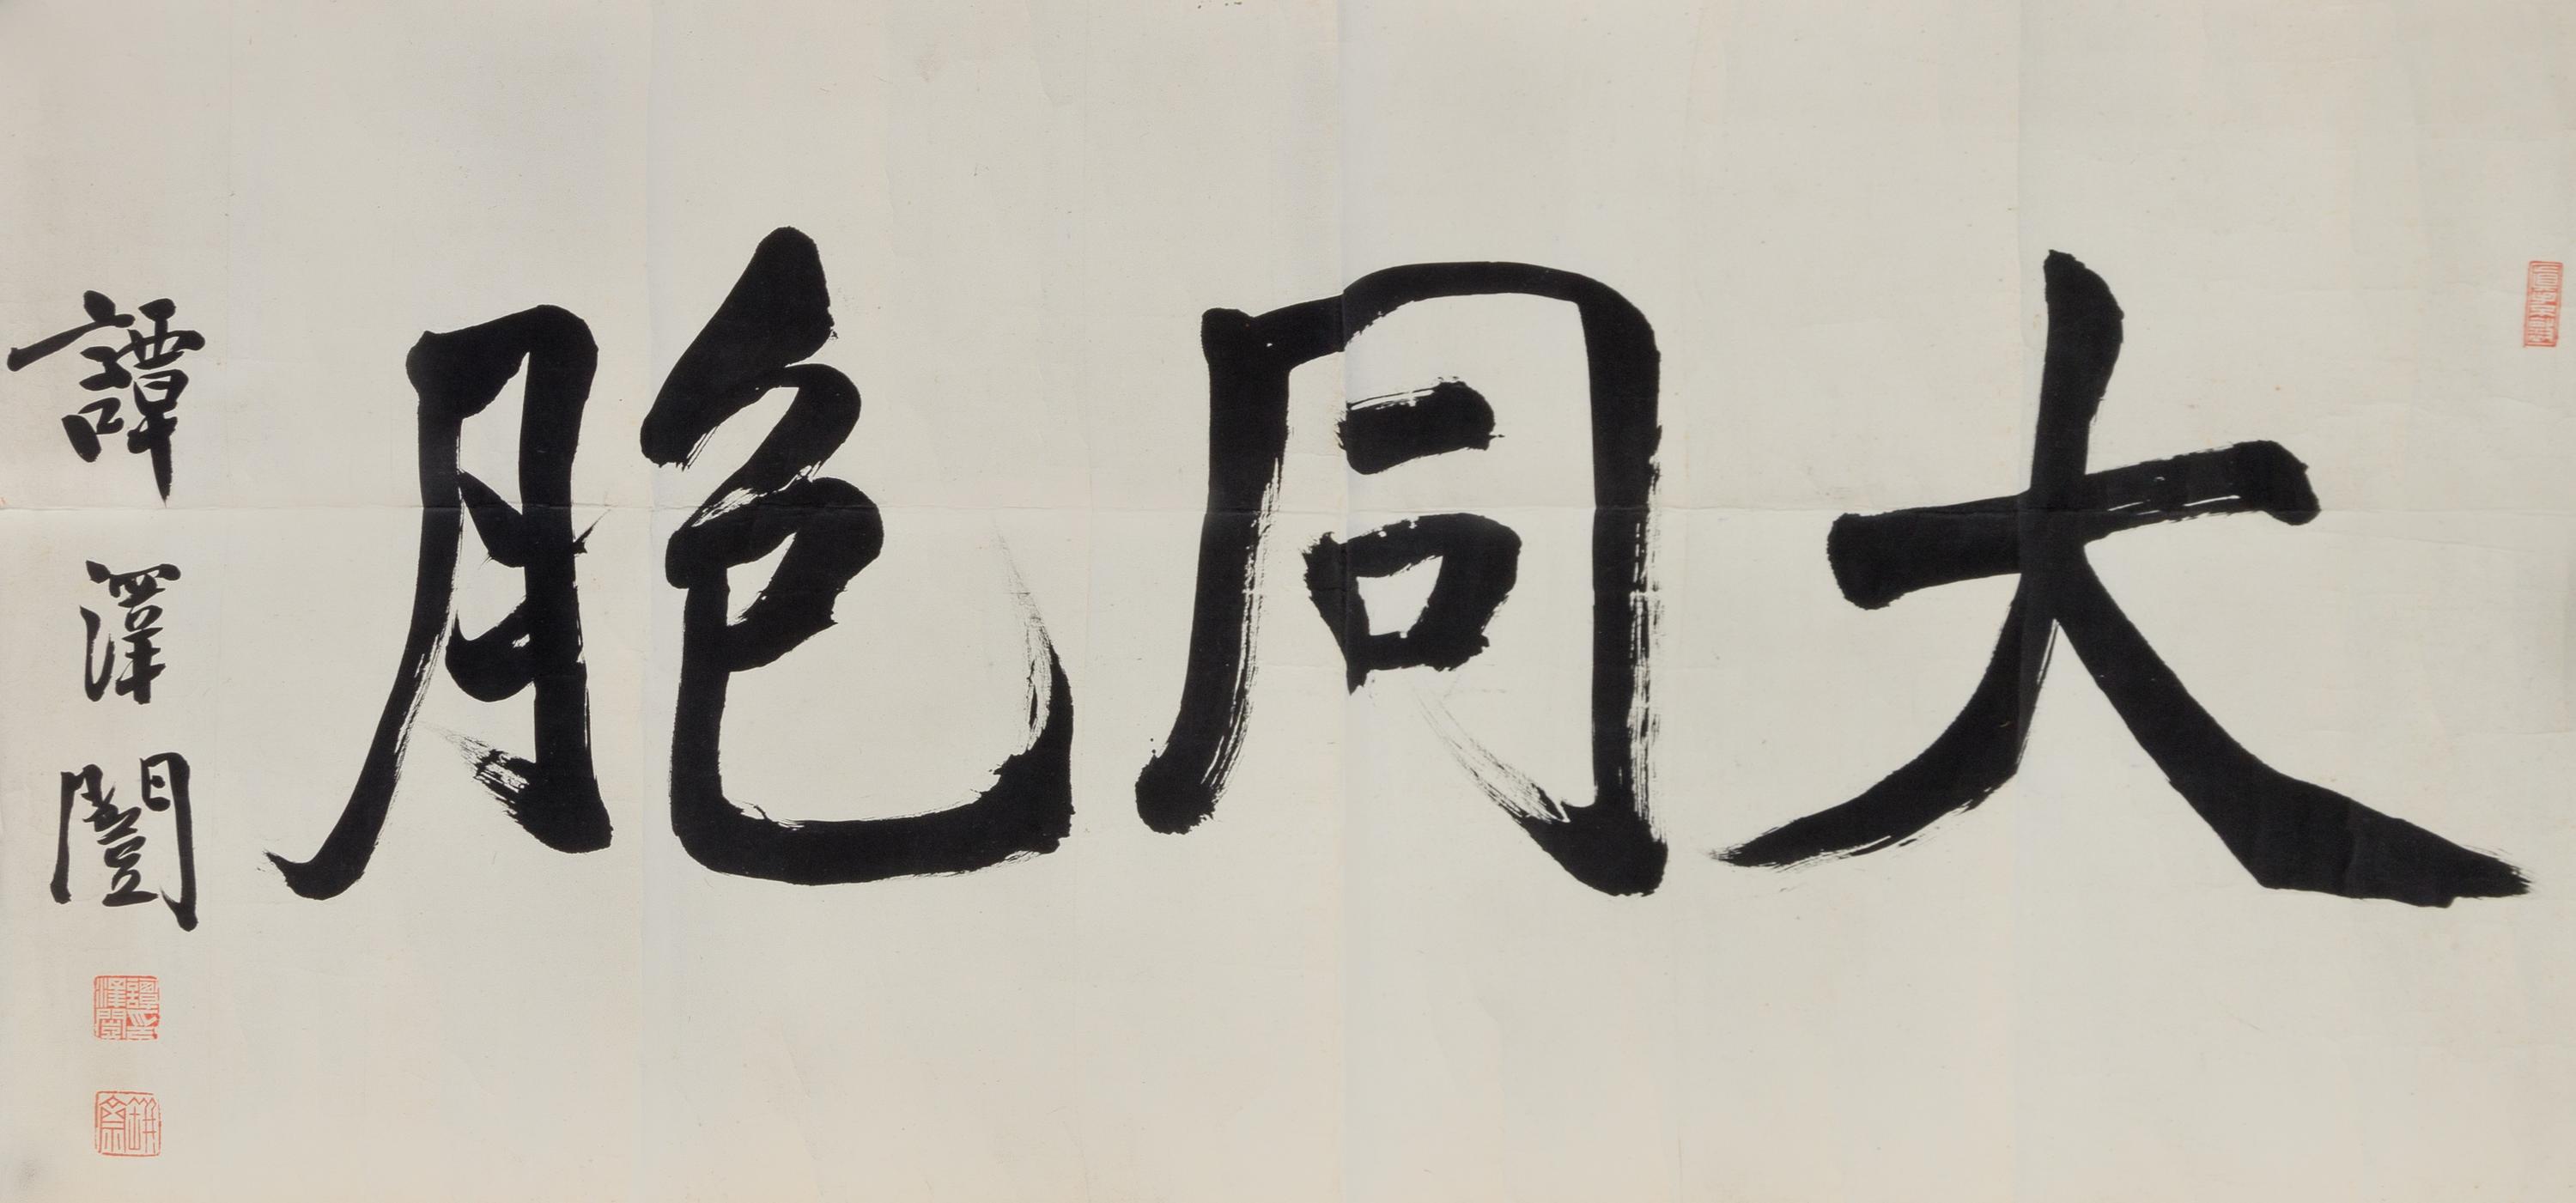 大同胞
譚澤闓
譚澤闓印